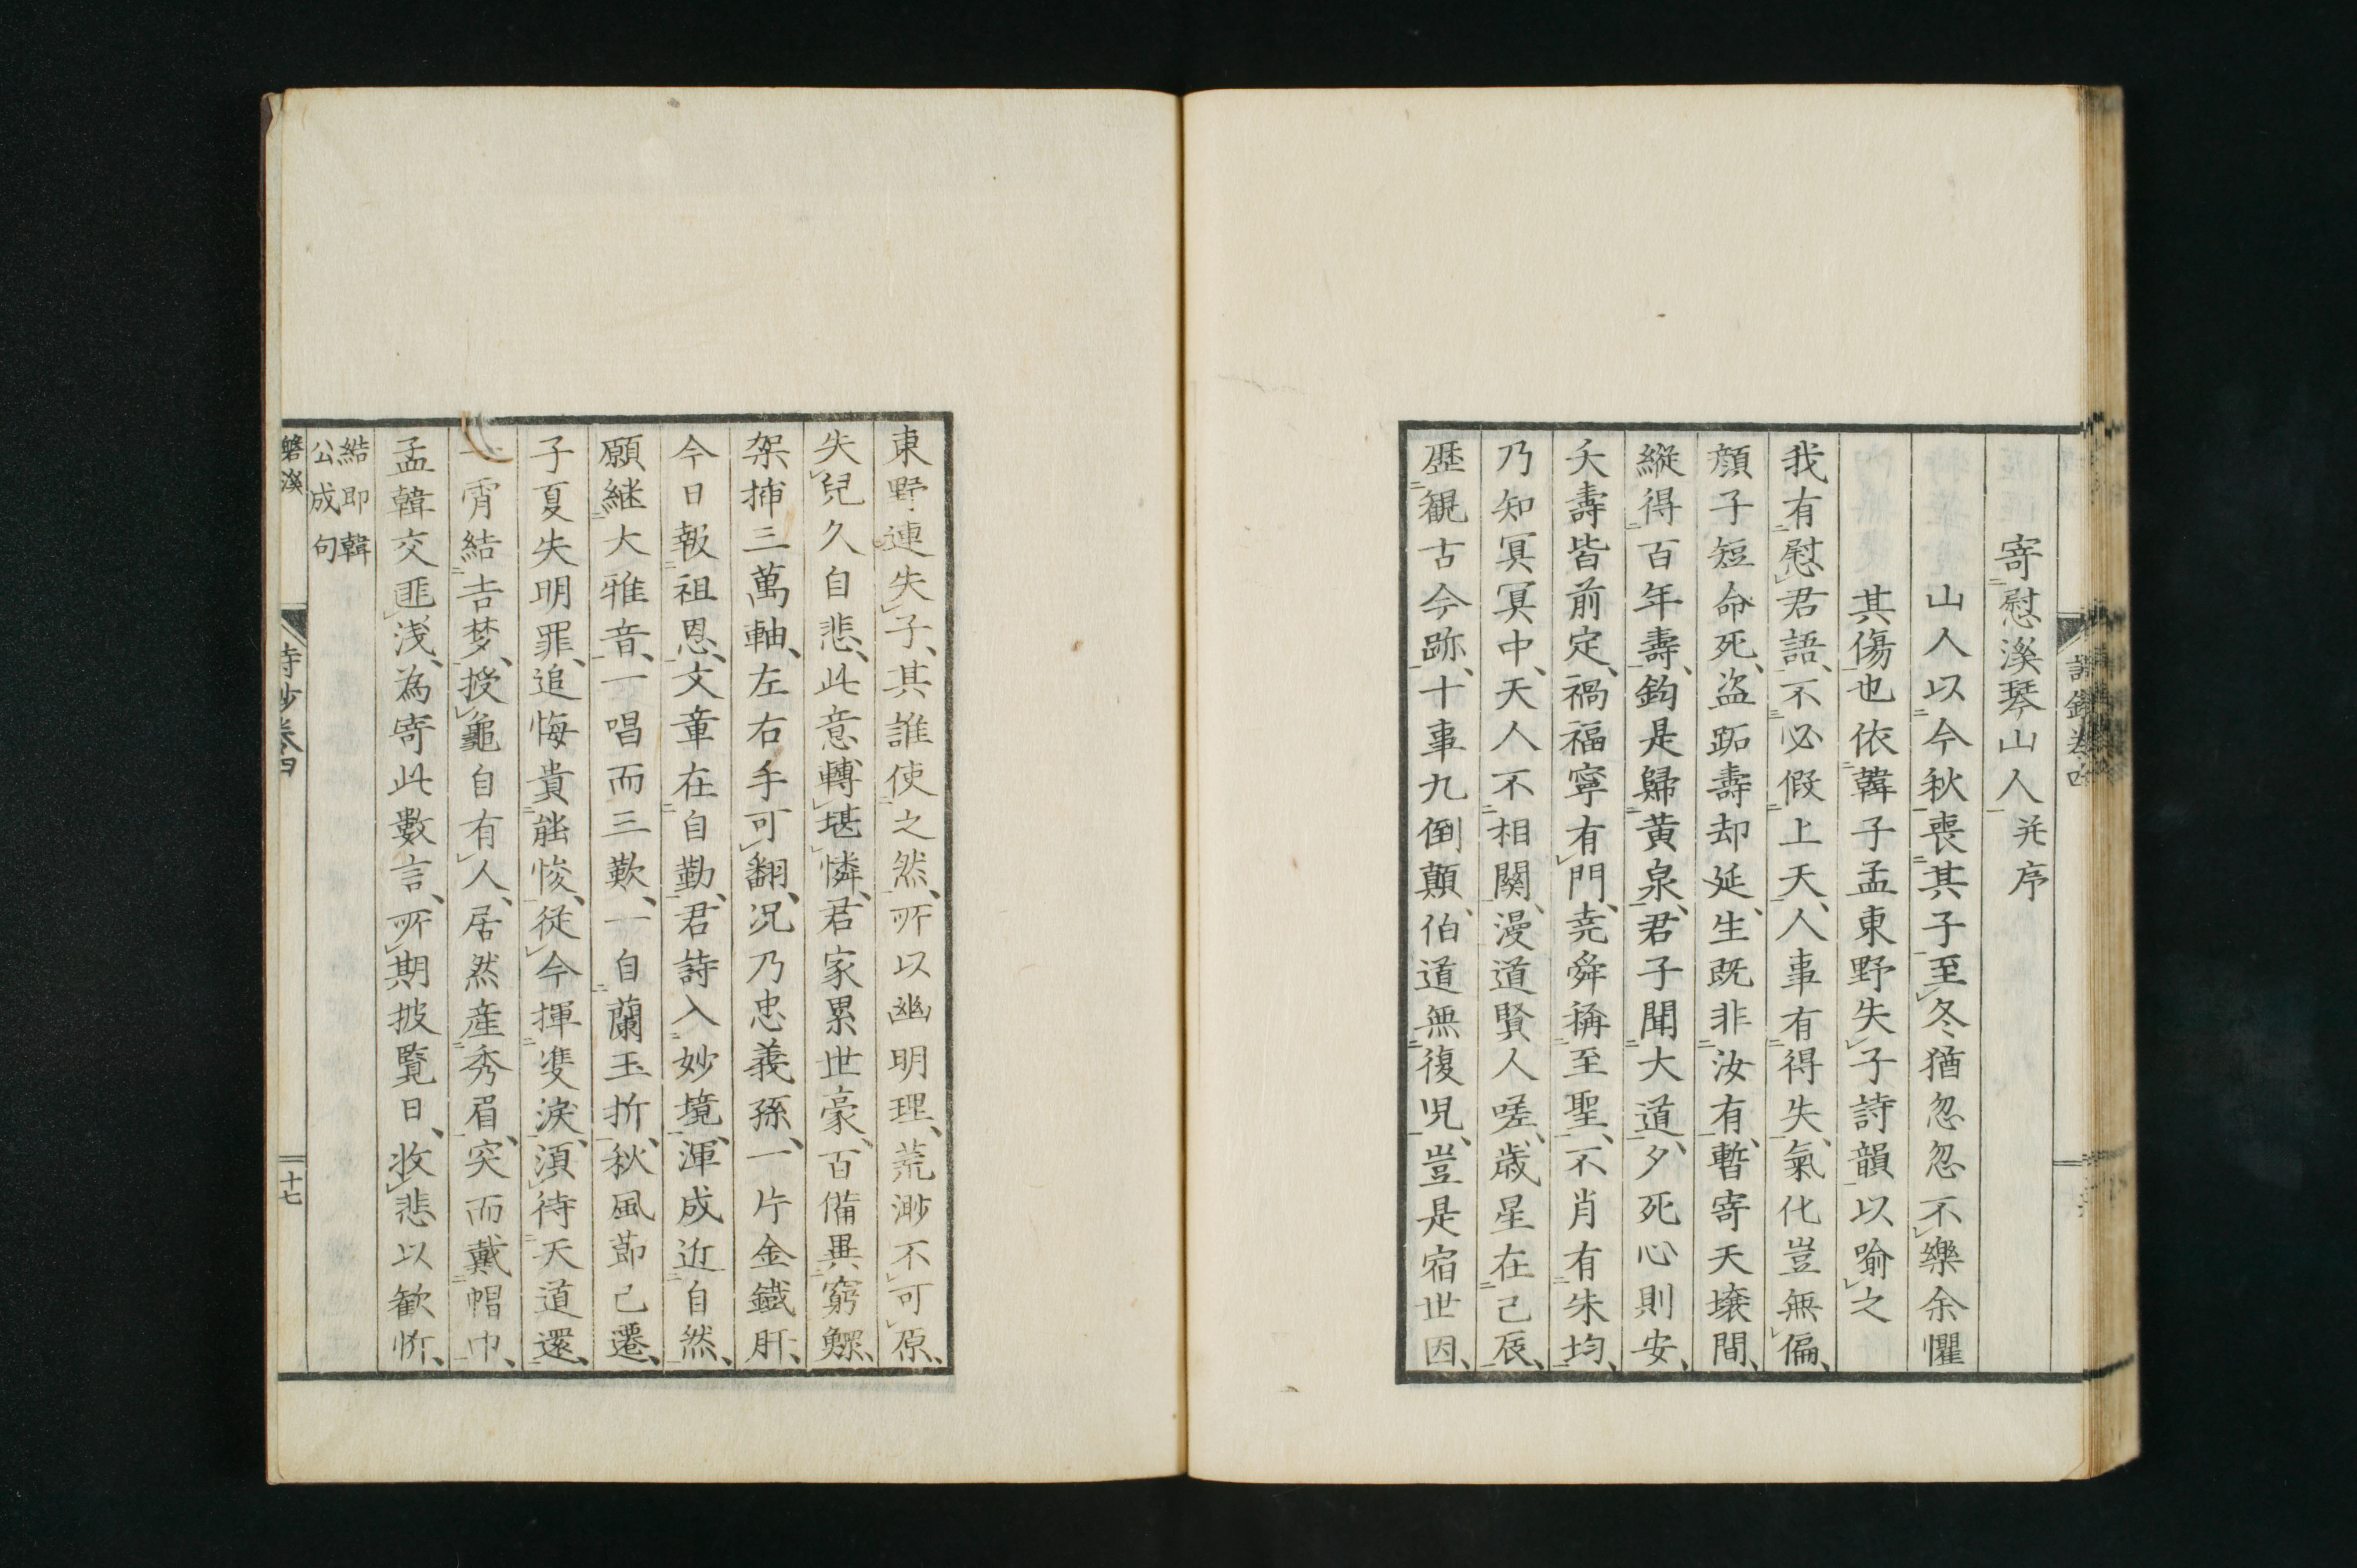 寄慰溪琴山人并序
山人以今秋喪其子至冬猶忽忽不樂余懼
其傷也依韓子孟東野失子詩韻以喻之
我有慰君語、不必假上天、人事有得失、氣化豈無偏、
顔子短命死、盗跖壽却延、生既非汝有、暫寄天壌間、
縦得百年壽、鈞是歸黄泉、君子聞大道、夕死心則安、
夭壽皆前定、禍福寧有門、尭舜稱至聖、不肖有朱均、
乃知冥冥中、天人不相關、漫道賢人嗟、歳星在己辰、
歴観古今跡、十事九倒顛、伯道無復児、豈是宿世因、
東野連失子、其誰使之然、所以幽明理、荒渺不可原、
失兒久自悲、此意轉堪憐、君家累世豪、百備異窮鰥、
架挿三萬軸、左右手可翻、況乃忠義孫、一片金鐵肝、
今日報祖恩、文章在自勤、君詩入妙境、渾成近自然、
願継大雅音、一唱而三歎、一自蘭玉折、秋風莭已遷、
子夏失明罪、追悔貴能悛、従今揮雙涙、須待天道還、
一宵結吉梦、授龜自有人、居然産秀眉、突而戴帽巾、
孟韓交匪浅、為寄此數言、所期披覧日、收悲以歓忻、
結即韓
公成句
磐溪 詩鈔巻四 十七